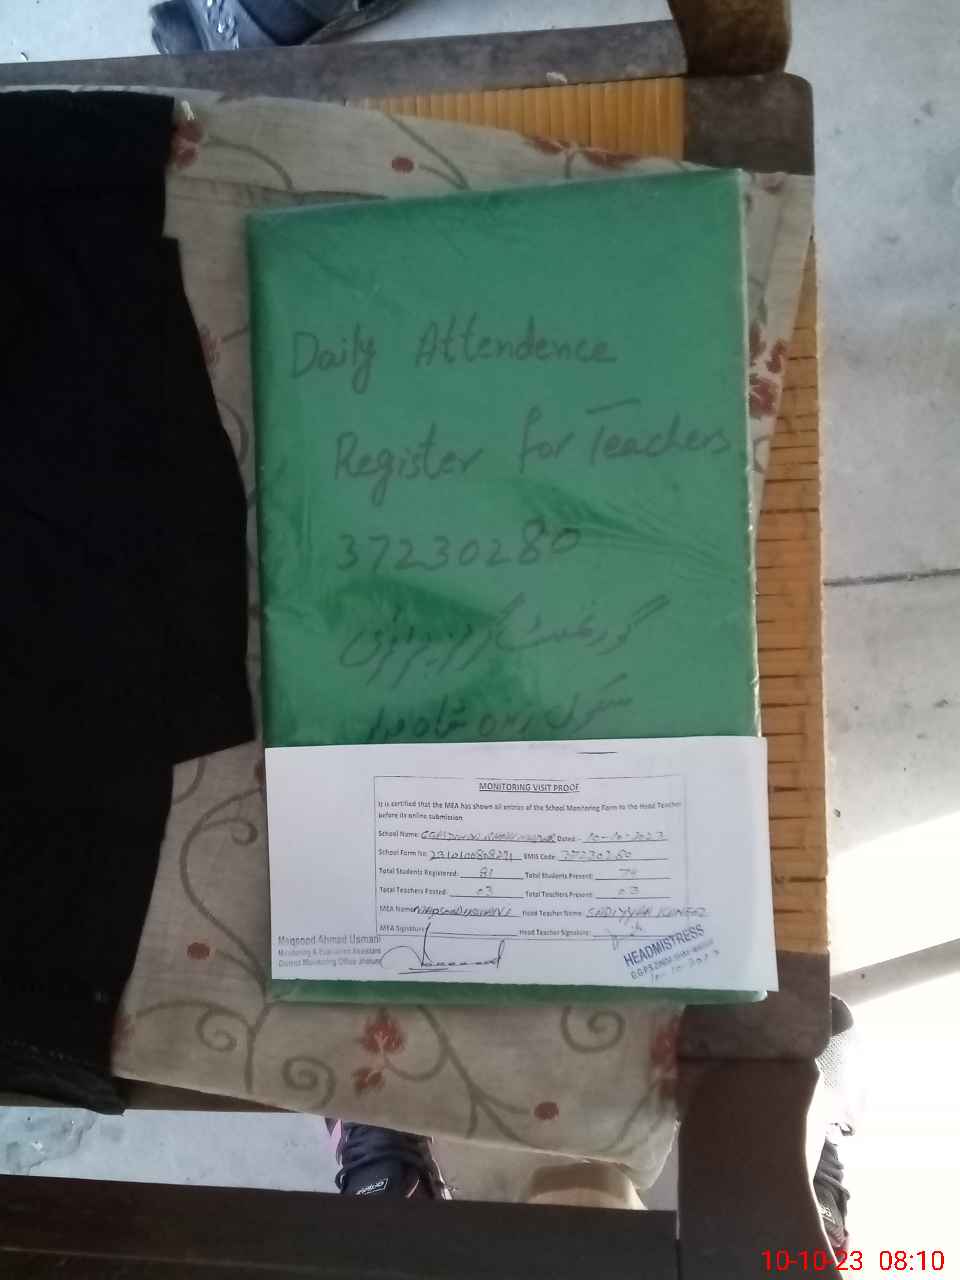 Daily Attendence
Register for Teachers
37230280
گورنمنٹ گرلز پرائمری
سکول زندہ شاہ
MONITORING VISIT PROOF
It is certified that the MEA has shown all entries of the School Monitoring Form to the Head Teacher
before its online submission
School Name: Dated:- 10-10-2023
School Form No: EMIS Code: 37230280
Total Students Registered: 81 Total Students Present:
Total Teachers Posted: 03 Total Teachers Present: 03
MEA Name Head Teacher Name:
MEA Signature: Head Teacher Signature:
Maqsood Ahmad Usmani
Monitoring & Evaluation Assistant
District Monitoring Office Jhang
HEADMISTRESS
10-10-2023
10-10-23 08:10